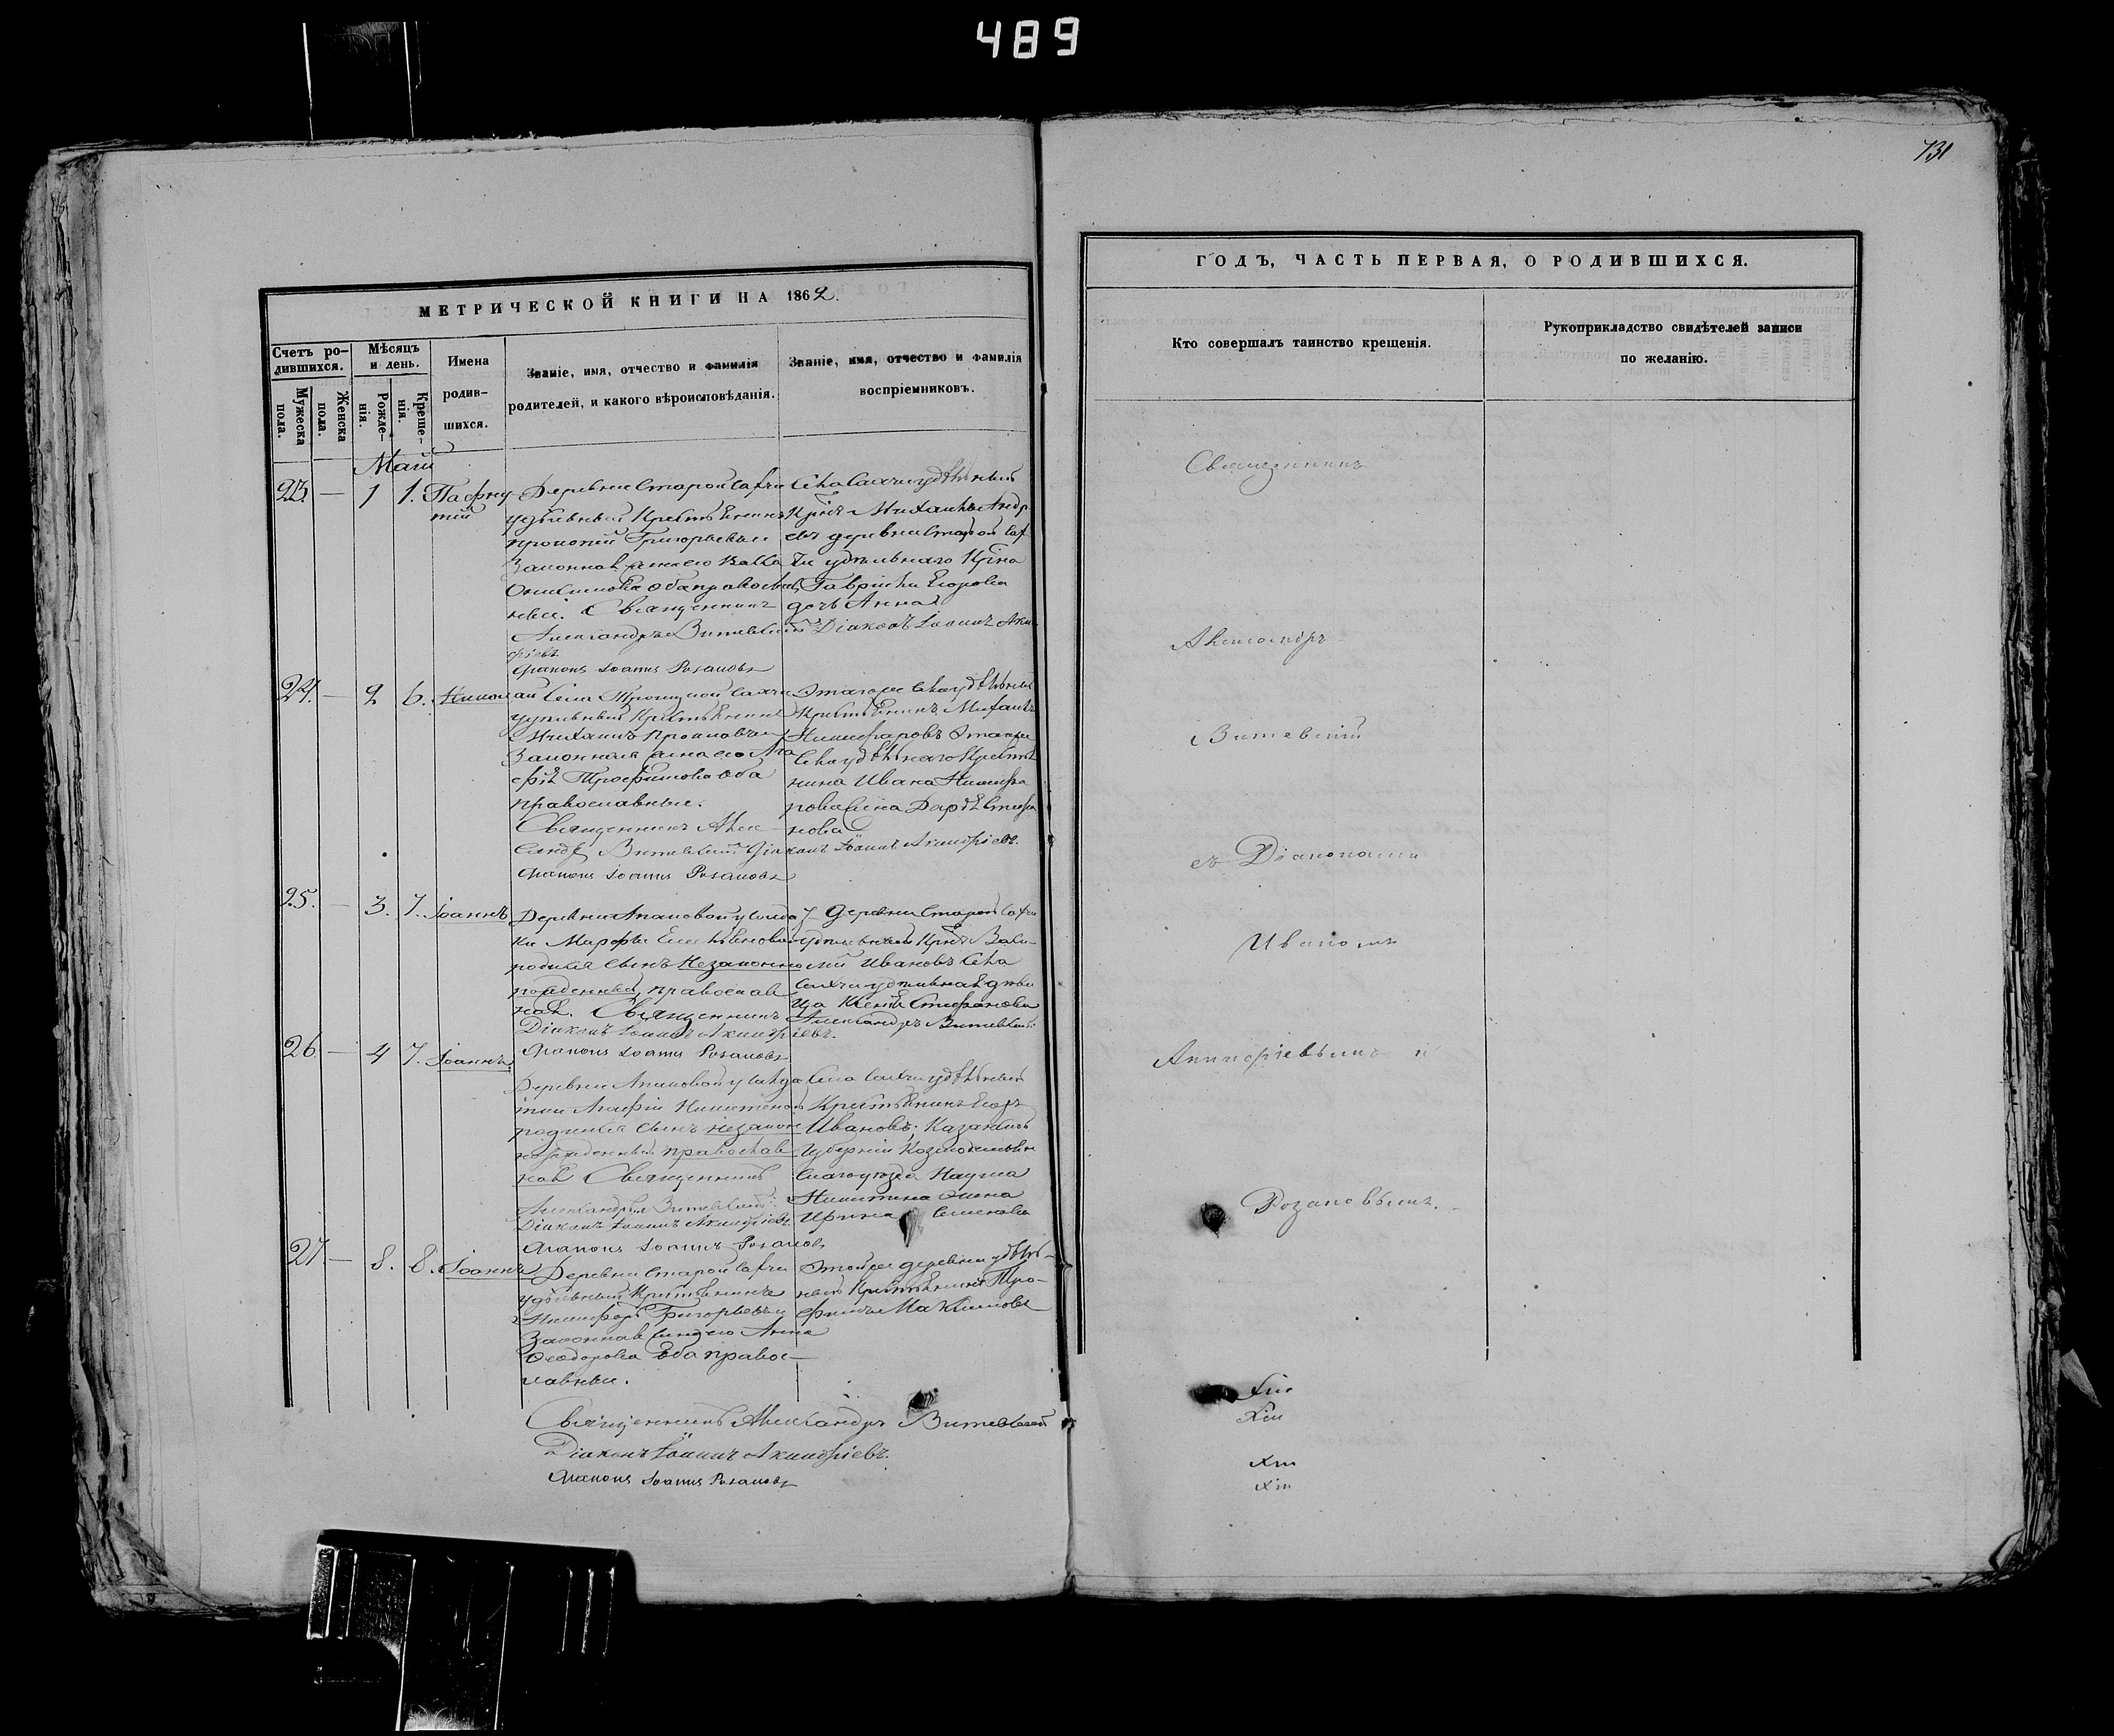 489
731
МЕТРИЧЕСКОЙ КНИГИ НА 1862.
Счетъ ро-
дившихся.
Мужеска
пола.
Женска
пола.
Мѣсяцъ
и день.
Рожде-
нія.
Креще-
нія.
Имена
родив-
шихся.
Званіе, имя, отчество и фамилія
родителей, и какого вѣроисповѣданія.
Званіе, имя, отчество и фамилія
воспріемниковъ.
Май
23. — 1 1. Пафну-
тій
Деревни Старой Сахчи
удѣльный Крестьянинъ
Прокопій Григорьевъ и
Законная жена его
Онисимова оба православ
ные. Священникъ
Александръ Витевскій
Села Сахчи удѣльный
Крнъ Михаилъ Андр
евъ деревни Старой Сах
чи удѣльнаго Крна
Гавріила Егорова
дочь Анна
Діаконъ Іоаннъ Акин
фіевъ
Діаконъ Іоаннъ Розановъ
24. — 2 6. Николай
Села Троицкой Сахчи
удѣльный Крестьянинъ
Михаилъ Прокловъ и
Законная жена его Ага
фія Трофимова оба
православные.
Священникъ Алек
сандръ Витевскій Діаконъ Іоаннъ Акинфіевъ.
Діаконъ Іоаннъ Розановъ
Этагоже села удѣльный
Крестьянинъ Михаилъ
Никифоровъ Этагоже
села удѣльнаго Крестья
нина Ивана Никифо
рова жена Дарья Стефа
нова
25. — 3. 7. Іоаннъ
Деревни Апановой у солдат
ки Марфы
родился сынъ незаконно
рожденный, православ
ная. Священникъ Александръ Витевскій
Діаконъ Іоаннъ Акинфіевъ.
Діаконъ Іоаннъ Розановъ
Деревни Старой Сахчи
удѣльный Крнъ Васи-
лій Ивановъ Села
Сахчи удѣльная дѣви
ца Ксенія Стефанова
26. — 4 7. Іоаннъ
Деревни Апановой у солда
тки Агафіи Никитиной
родился сынъ незакон
норожденный православ
ная Священникъ
Александръ Витевскій
Діаконъ Іоаннъ Акинфіевъ.
Діаконъ Іоаннъ Розановъ
Села Сахчи удѣльный
Крестьянинъ Егоръ
Ивановъ. Казанской
Губерніи Козмодемьян
скаго уѣзда Наума
Никитина жена
Ирина Семенова
27 — 8. 8. Іоаннъ
Деревни Старой Сахчи
удѣльный Крестьянинъ
Никифоръ Григорьевъ и
Законная жена его Анна
Ѳеодорова оба правос-
лавные.
Этойже деревни удѣль-
ный Крестьянинъ Тро-
фимъ Максимовъ
Священникъ Александръ Витевскій
Діаконъ Іоаннъ Акинфіевъ.
Діаконъ Іоаннъ Розановъ
ГОДЪ, ЧАСТЬ ПЕРВАЯ, О РОДИВШИХСЯ.
Кто совершалъ таинство крещенія.
Рукоприкладство свидѣтелей записи
по желанію.
Священникъ
Александръ
Витевскій
съ Діаконами
Иваномъ
Акинфіевымъ и
Розановымъ.